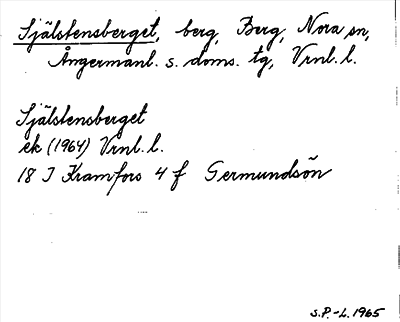 Själstensberget, berg, Berg, Nora sn,
Ångermanl. s. doms. tg, Vrnl. l.
Själstensberget
ek (1964) Vrnl. l.
18 J Kramfors 4 f Germundsön
S.P.-L. 1965